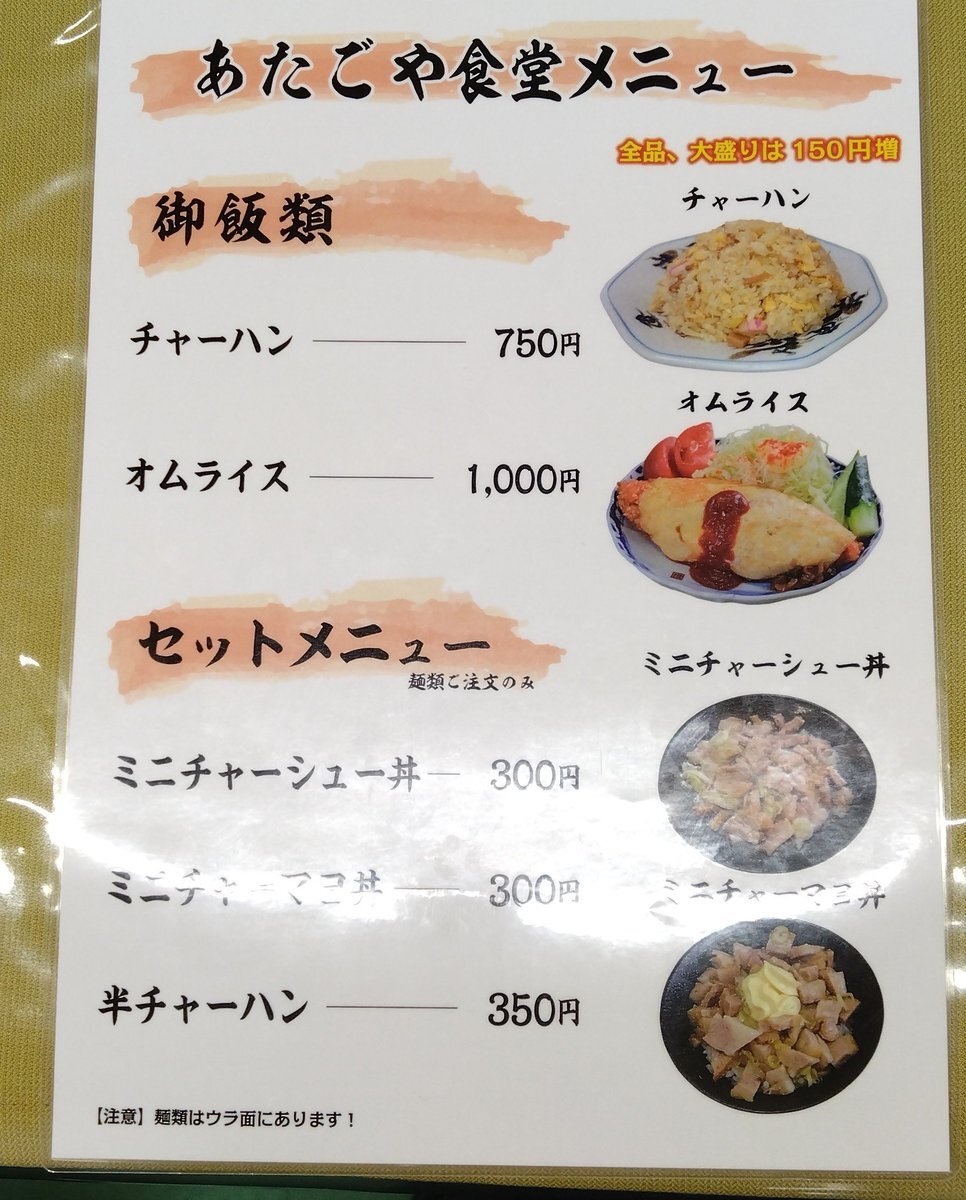 あたごや食堂メニュー
全品、大盛りは150円増
御飯類
チャーハン
チャーハン 750円
オムライス
オムライス 1,000円
セットメニュー
麺類ご注文のみ
ミニチャーシュー丼
ミニチャーシュー丼 300円
ミニチャーマヨ丼 300円
ミニチャーマヨ丼
半チャーハン 350円
【注意】麺類はウラ面にあります！